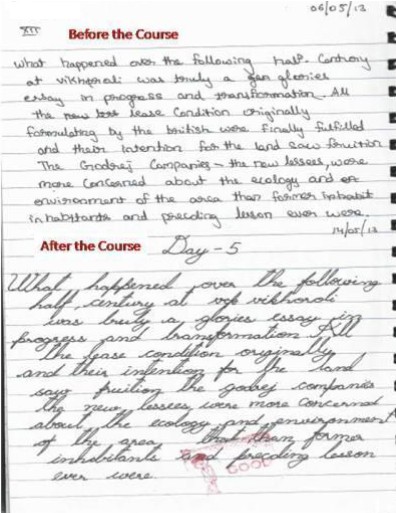 06/05/13
XII Before the Course
what happened over the following half. Century
at vikhorali was truly a glories
essay in progress and transformation. All
the new lease Condition originally
formulating by the british were finally fulfilled
and their intention for the land saw fruition
The Godrej Companies - the new lessees, were
more Concerned about the ecology and
environment of the area then former
inhabitants and preceding lesson ever were.
14/05/13
After the Course Day - 5
What happened over the following
half, century at vikhorali
was truly a glories essay in
progress and transformation All
the lease condition originally
and their intention for the land
saw fruition the godrej companies
the new lessees were more concerned
about the ecology and environment
of the area that then former
inhabitants and preceding lesson
ever were.
GOOD